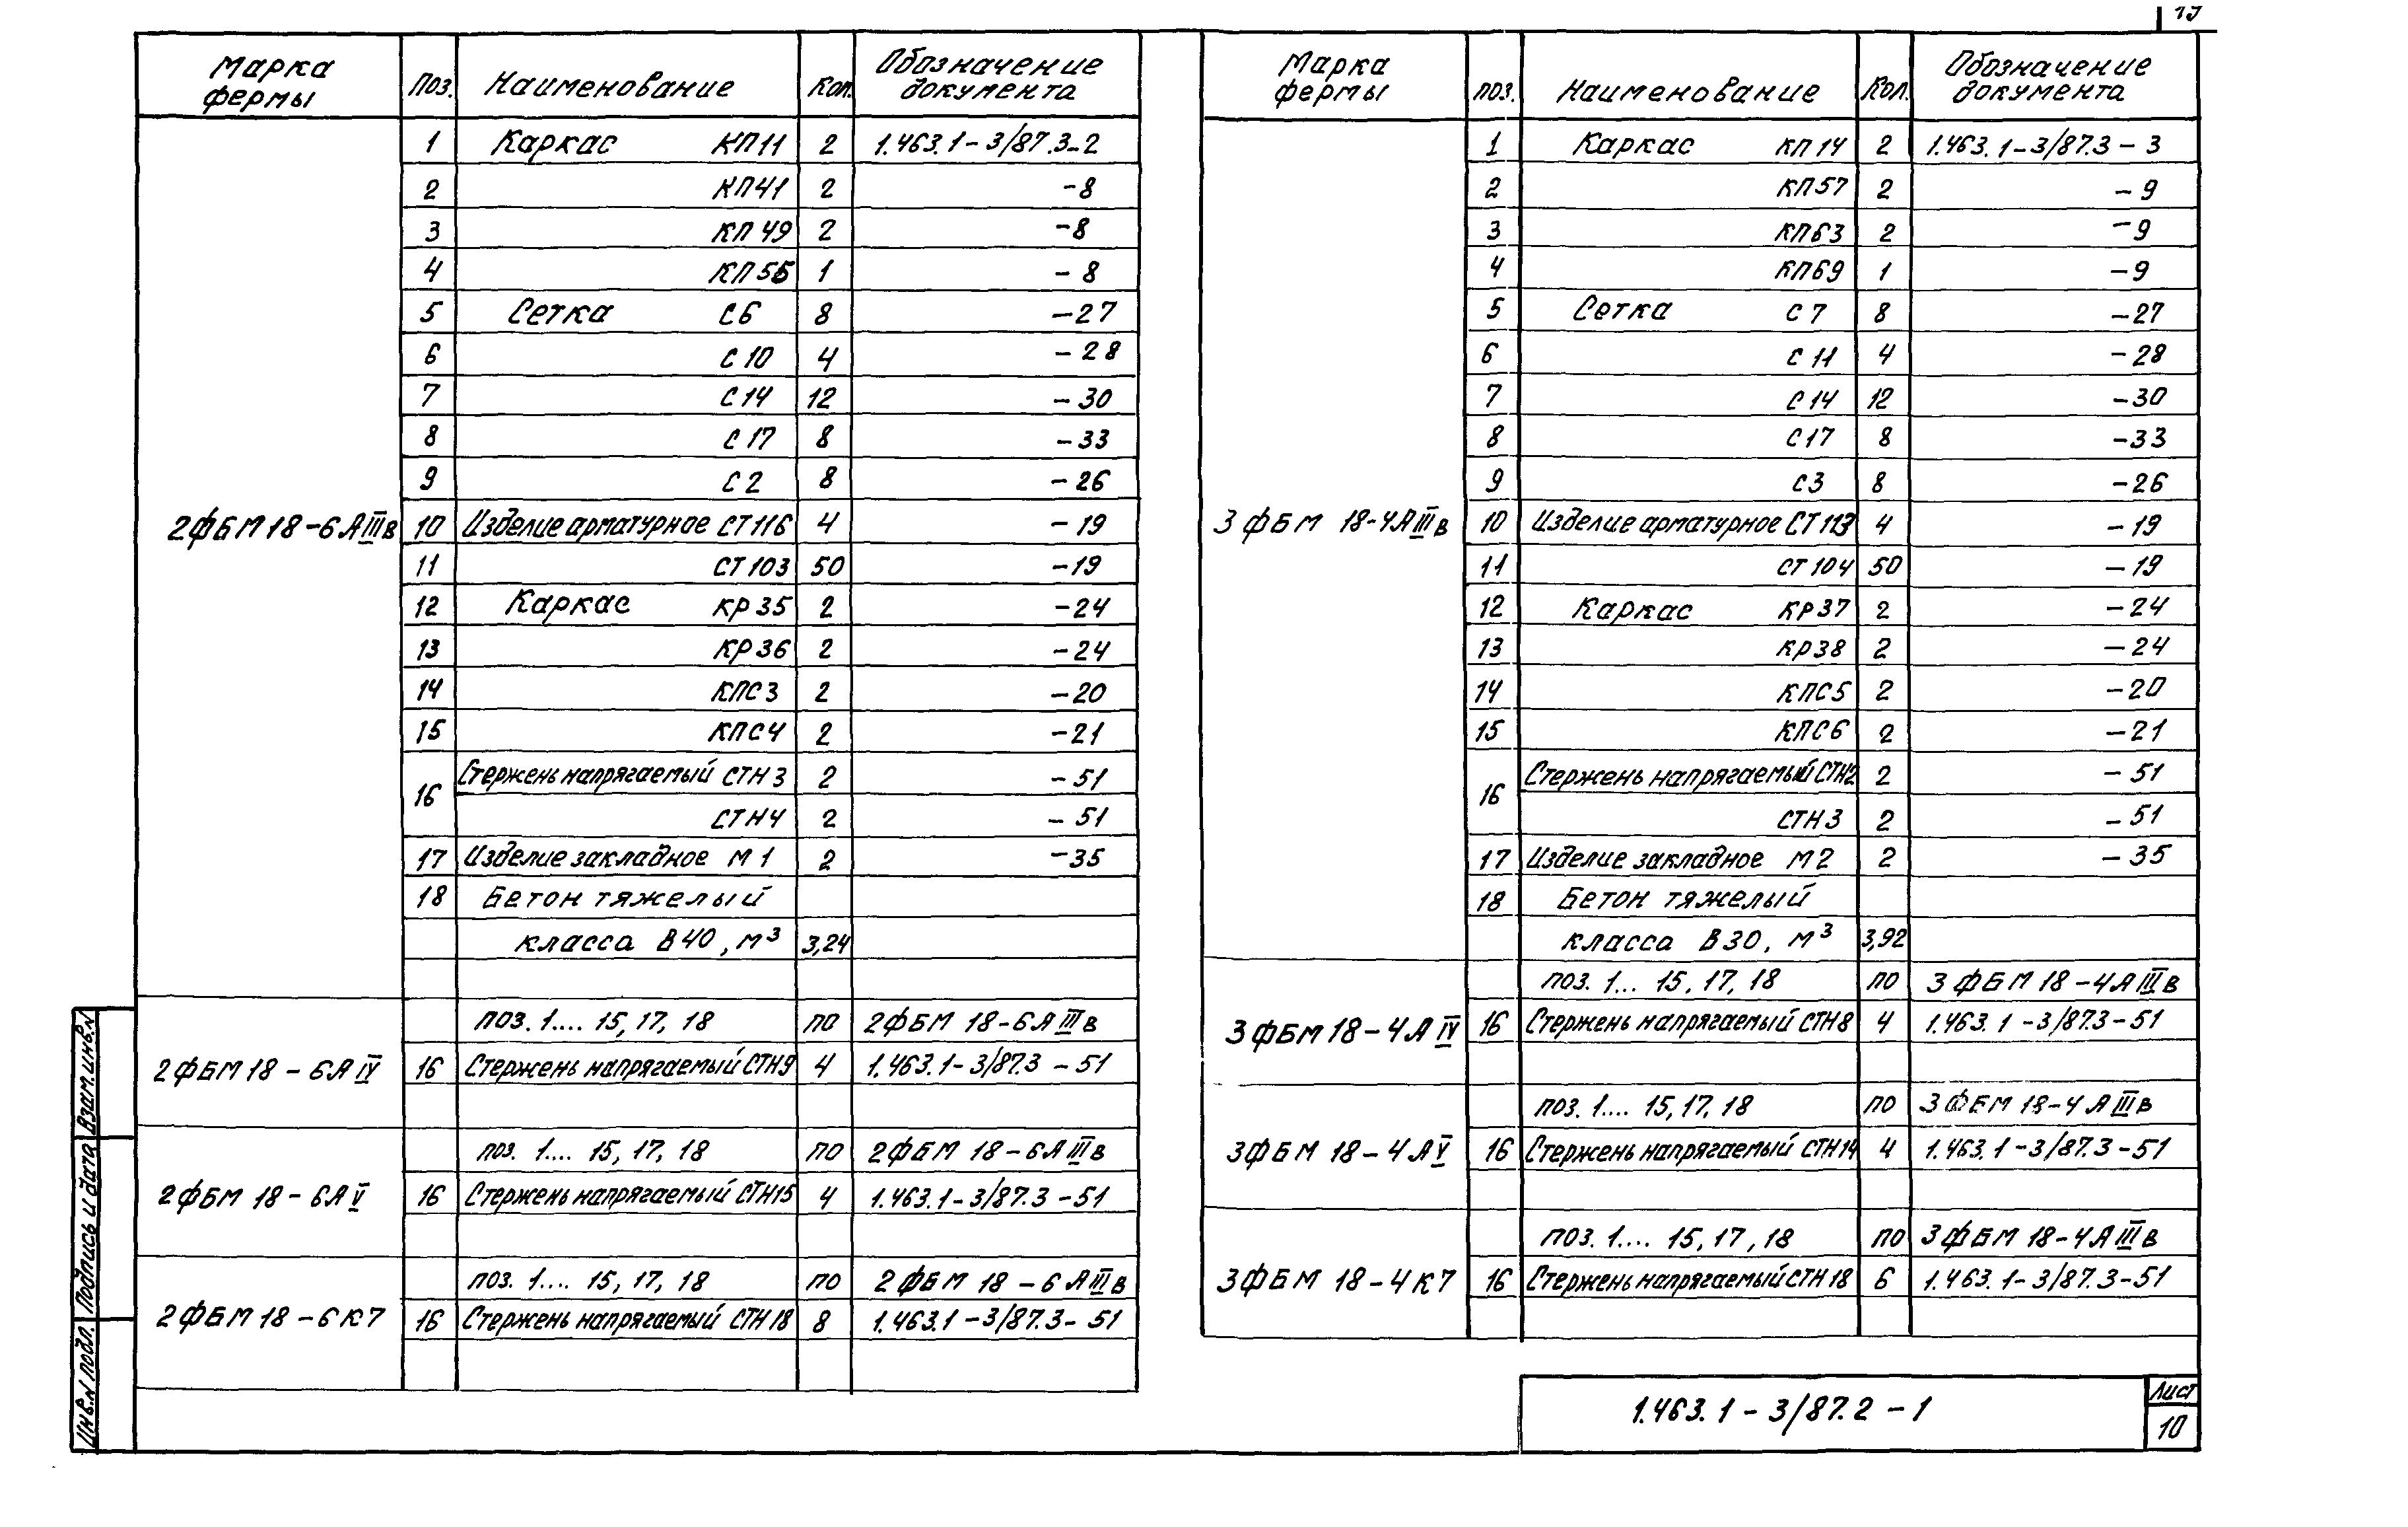 Марка фермы Поз. Наименование Кол. Обозначение документа
2ФБМ18-6АIIIв
1 Каркас КП11 2 1.463.1-3/87.3-2
2 КП41 2 -8
3 КП49 2 -8
4 1 -8
5 Сетка С6 8 -27
6 С10 4 -28
7 С14 12 -30
8 С17 8 -33
9 С2 8 -26
10 Изделие арматурное СТ116 4 -19
11 СТ103 50 -19
12 Каркас КР35 2 -24
13 КР36 2 -24
14 КПС3 2 -20
15 КПС4 2 -21
16 Стержень напрягаемый СТН3 2 -51
СТН4 2 -51
17 Изделие закладное М1 2 -35
18 Бетон тяжелый
класса В40, м³ 3,24
2ФБМ18-6АIV
поз. 1.... 15, 17, 18 по 2ФБМ 18-6АIIIв
16 Стержень напрягаемый СТН9 4 1.463.1-3/87.3-51
2ФБМ 18-6АV
поз. 1.... 15, 17, 18 по 2ФБМ 18-6АIIIв
16 Стержень напрягаемый СТН15 4 1.463.1-3/87.3-51
2ФБМ18-6К7
поз. 1.... 15, 17, 18 по 2ФБМ 18-6АIIIв
16 Стержень напрягаемый СТН18 8 1.463.1-3/87.3-51
Марка фермы поз. Наименование Кол. Обозначение документа
3ФБМ 18-4АIIIв
1 Каркас КП14 2 1.463.1-3/87.3-3
2 КП57 2 -9
3 КП63 2 -9
4 КП69 1 -9
5 Сетка С7 8 -27
6 С11 4 -28
7 С14 12 -30
8 С17 8 -33
9 С3 8 -26
10 Изделие арматурное СТ113 4 -19
11 СТ104 50 -19
12 Каркас КР37 2 -24
13 КР38 2 -24
14 КПС5 2 -20
15 КПС6 2 -21
16 Стержень напрягаемый СТН2 2 -51
СТН3 2 -51
17 Изделие закладное М2 2 -35
18 Бетон тяжелый
класса В30, м³ 3,92
3ФБМ18-4АIV
поз. 1... 15, 17, 18 по 3ФБМ 18-4АIIIв
16 Стержень напрягаемый СТН8 4 1.463.1-3/87.3-51
3ФБМ 18-4АV
поз. 1.... 15, 17, 18 по 3ФБМ 18-4АIIIв
16 Стержень напрягаемый СТН14 4 1.463.1-3/87.3-51
3ФБМ 18-4К7
поз. 1.... 15, 17, 18 по 3ФБМ 18-4АIIIв
16 Стержень напрягаемый СТН18 6 1.463.1-3/87.3-51
1.463.1-3/87.2-1
Лист
10
Взам.инв.№
Подпись и дата
Инв.№ подл.